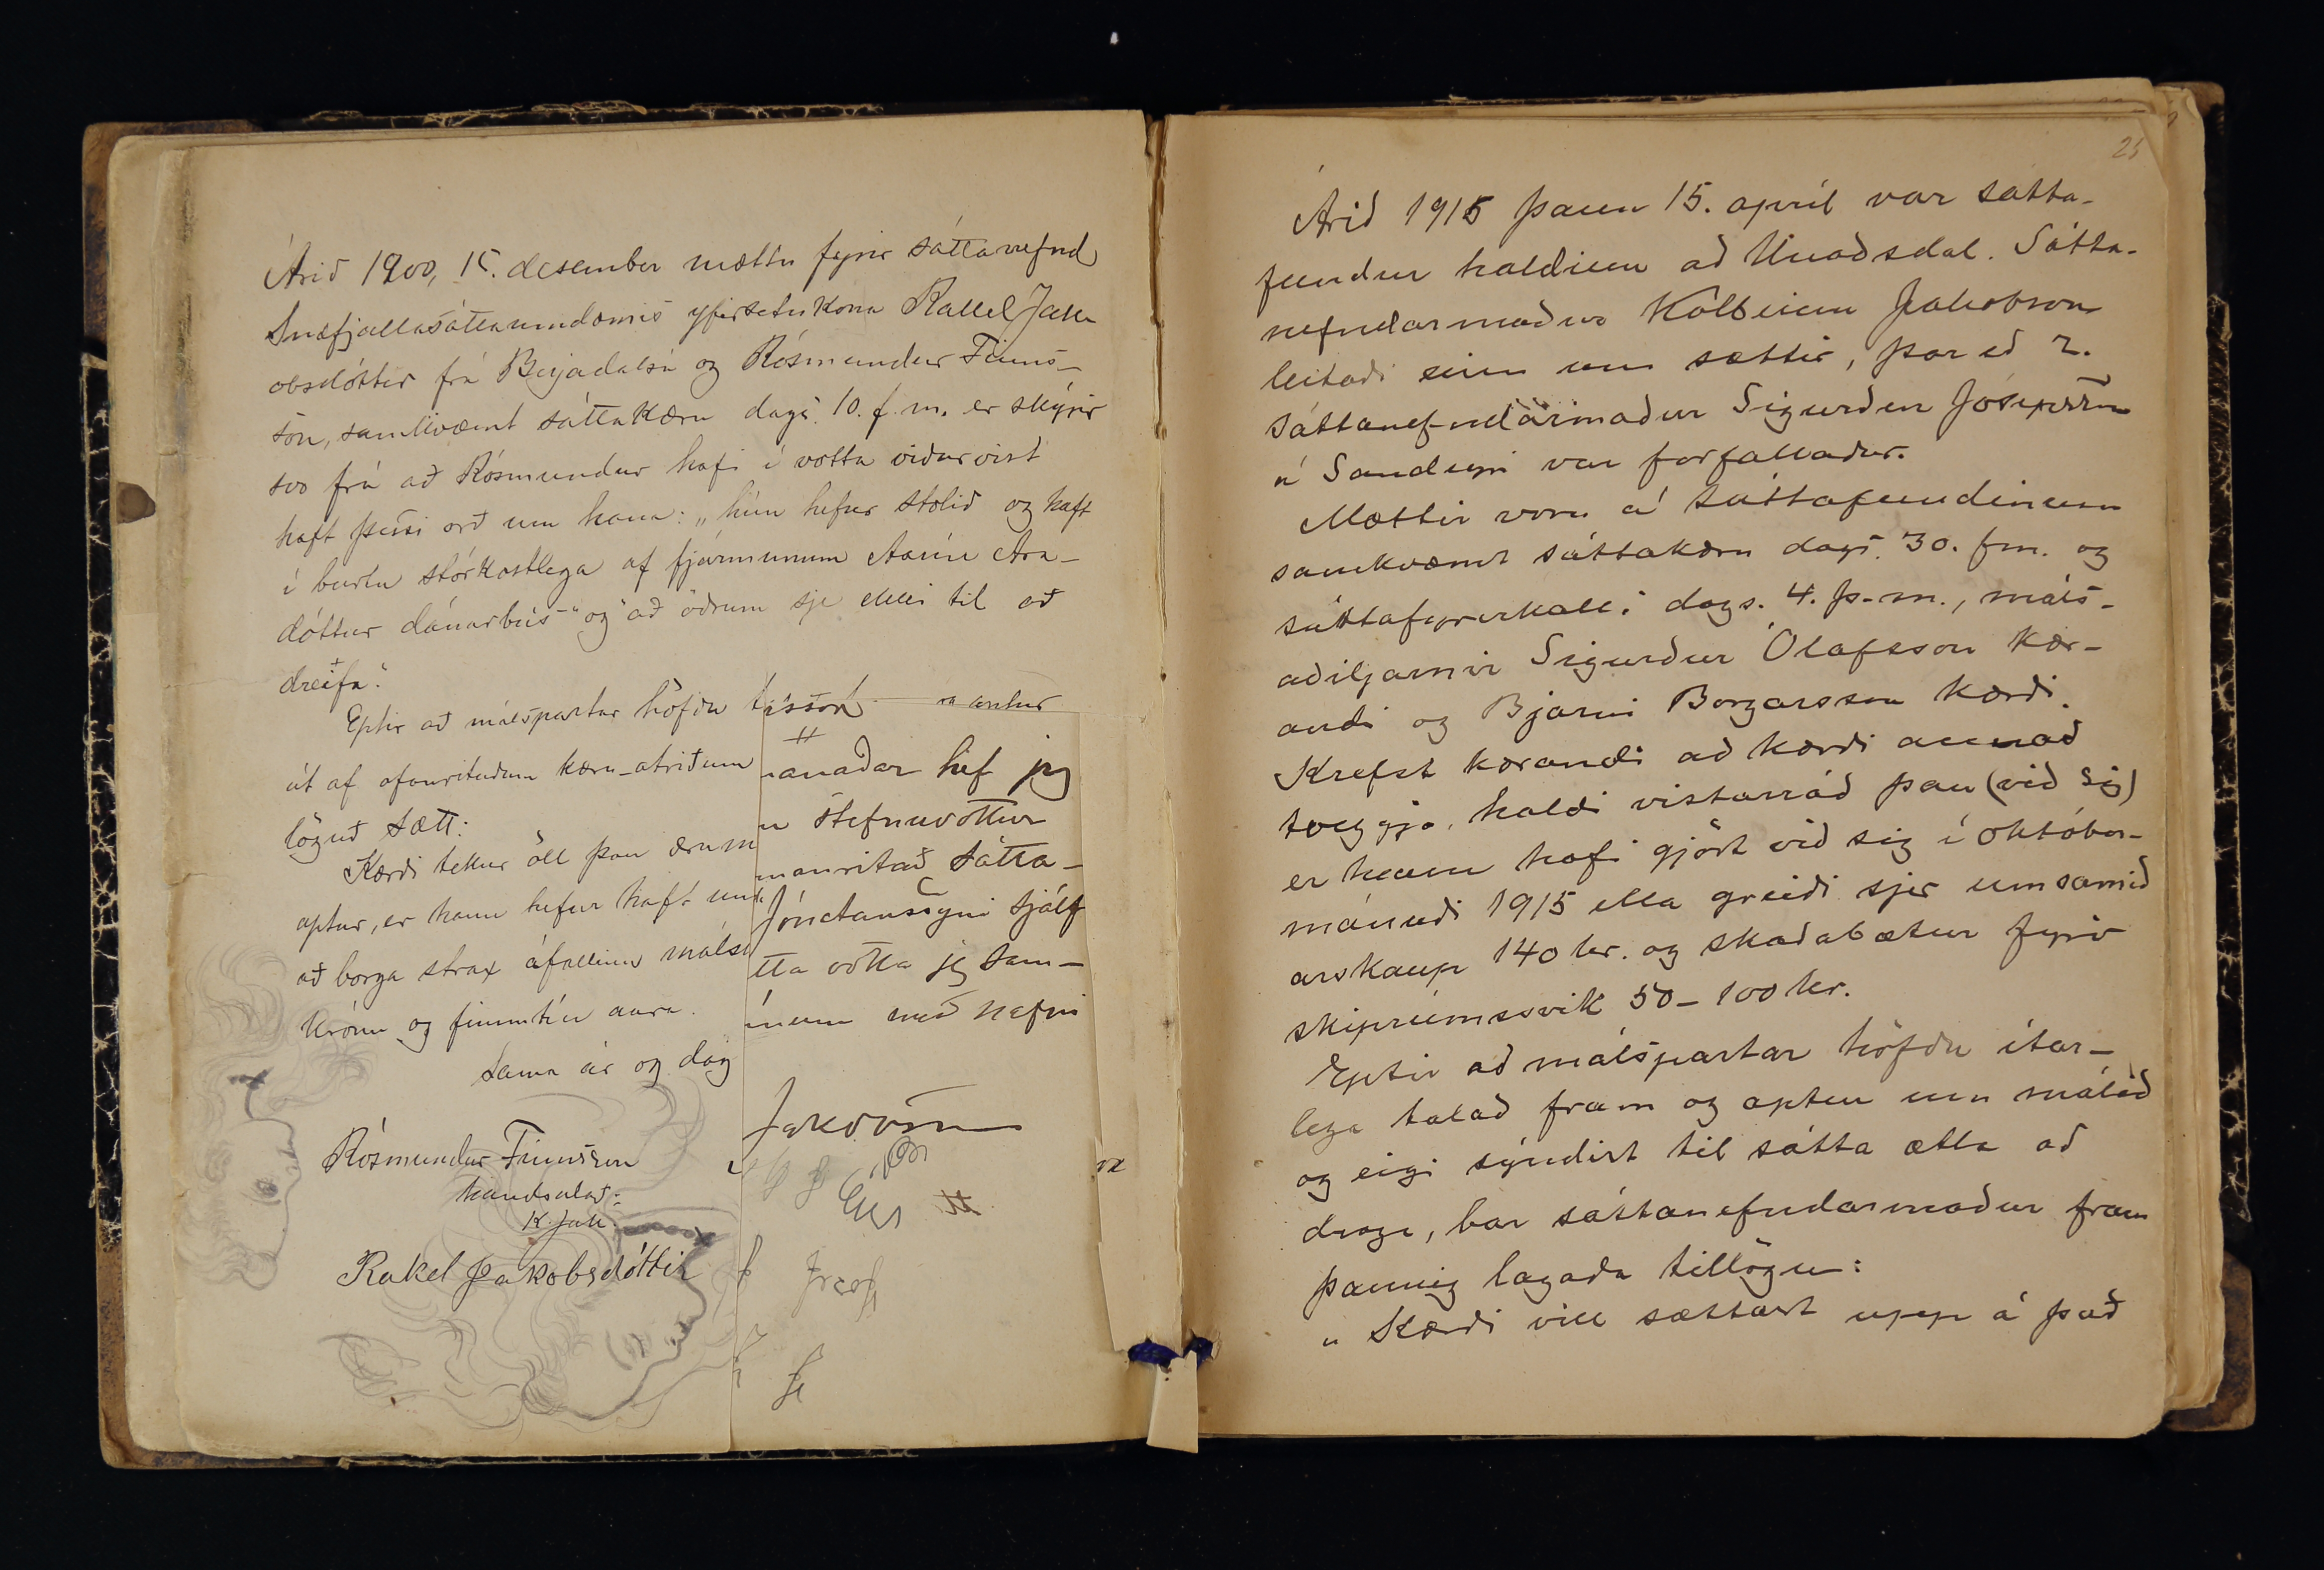 Árið 1900, 15. desember mættu fyrir sáttanefnd
Snæfjallasáttaumdæmis yfirsetukona Rakel Jak-
obsdóttir frá Bæjadalsá og Rósmundur Finns-
son, samkvæmt sáttakæru dags. 10. f. m. er skýrir
svo frá að Rósmundur hafi í votta viðurvist
haft þessi orð um hana: „hún hefur stolið og haft
í burtu stórkostlega af fjármunum Ara-
dóttur dánarbús" og "að öðrum sje ekki til að
dreifa".
Eptir að málspartar höfðu
út af ofanrituðum kæru-atriðum
löguð sætt:
Kærði tekur öll þau ærum
aptur, er hann hefur haft um
að borga strax áfallinn máls
krónu og fimmtíu aura.
Sama ár og dag
Rósmundur Finnsson
handsalað:
K. Jak.
Rakel Jakobsdóttir
ánaðar hef jeg
stefnuvottur
manritað sátta-
Jónatanssyni sjálf
tta votta jeg sam-
ínum með nafni
25
Árið 1916 þann 15. apríl var sátta-
fundur haldinn að Unaðsdal. Sátta-
nefndarmaður Kolbeinn Jakobsson
leitaði einn um sættir, þar eð 2.
sáttanefndarmaður Sigurður Jósepsson
á Sandeyri var forfallaður.
Mættir voru á sáttafundinum
samkvæmt sáttakæru dags. 30. f.m. og
sáttafyrirkalli dags. 4. þ.m., máls-
aðiljarnir Sigurður Ólafsson kær-
andi og Bjarni Borgarsson kærði.
Krefst kærandi að kærði annað
tveggja, haldi vistarráð þau (við sig)
er hann hafi gjört við sig í október-
mánuði 1915 ella greiði sjer umsamið
árskaup 140 kr. og skaðabætur fyrir
skiprúmssvik 50-100 kr.
Eptir að málspartar höfðu ítar-
lega talað fram og aptur um málið
og eigi sýndist til sátta ætla að
draga, bar sáttanefndarmaður fram
þannig lagaða tillögu:
„Kærði vill sættast upp á það